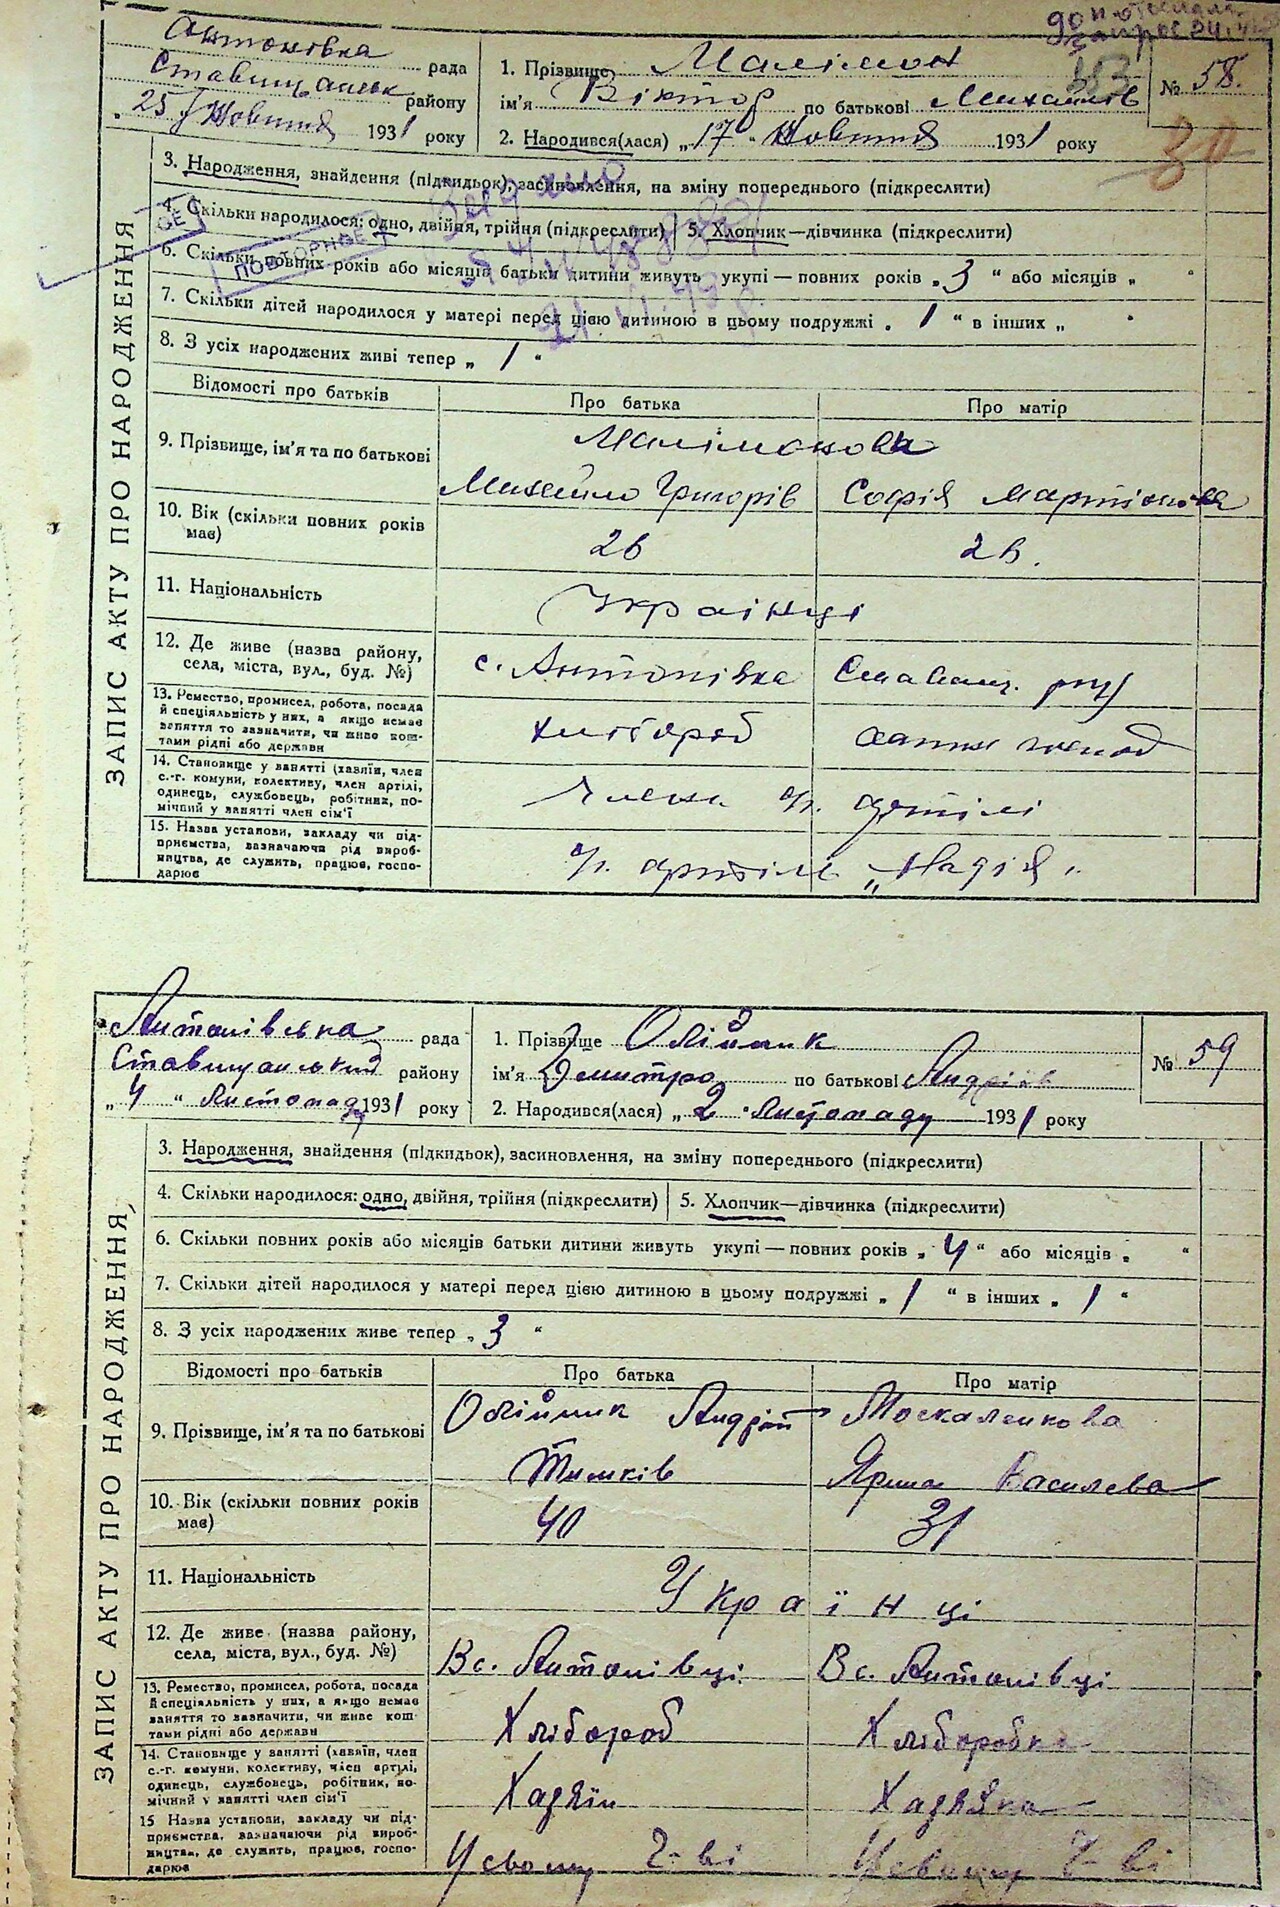 Антонівка рада
Ставищанськ району
„25" Жовтня 1931 року
1. Прізвище Малімон
ім'я Віктор по батькові Михайлів
2. Народився(лася) „17" Жовтня 1931 року
№ 58.
30
ЗАПИС АКТУ ПРО НАРОДЖЕННЯ
3. Народження, знайдення (підкидьок), засиновлення, на зміну попереднього (підкреслити)
4. Скільки народилося: одно, двійня, трійня (підкреслити) 5. Хлопчик—дівчинка (підкреслити)
ПОВТОРНОЕ
6. Скільки повних років або місяців батьки дитини живуть укупі — повних років „3" або місяців „ "
7. Скільки дітей народилося у матері перед цією дитиною в цьому подружжі „1" в інших „ "
8. З усіх народжених живі тепер „1"
Відомості про батьків Про батька Про матір
9. Прізвище, ім'я та по батькові Малімонови
Михайло Григорів Софія Мартинова
10. Вік (скільки повних років має) 26 26.
11. Національність Українці
12. Де живе (назва району, села, міста, вул., буд. №) с. Антонівка Ставищ. р-ну
13. Ремество, промисел, робота, посада й спеціальність у них, а якщо немає заняття то зазначити, чи живе коштами рідні або держави хлібороб
14. Становище у занятті (хазяїн, член с.-г. комуни, колективу, член артілі, одинець, службовець, робітник, помічний у занятті член сім'ї Члени артілі
15. Назва установи, закладу чи підприємства, вазначаючи рід виробництва, де служить, працює, господарює артіль „Надія"
Антонівська рада
Ставищанський району
„4" Листопада 1931 року
1. Прізвище Олійник
ім'я Дмитро по батькові Андріїв
2. Народився(лася) „2" Листопаду 1931 року
№ 59
ЗАПИС АКТУ ПРО НАРОДЖЕННЯ
3. Народження, знайдення (підкидьок), засиновлення, на зміну попереднього (підкреслити)
4. Скільки народилося: одно, двійня, трійня (підкреслити) 5. Хлопчик—дівчинка (підкреслити)
6. Скільки повних років або місяців батьки дитини живуть укупі — повних років „4" або місяців „ "
7. Скільки дітей народилося у матері перед цією дитиною в цьому подружжі „1" в інших „1"
8. З усіх народжених живе тепер „3"
Відомості про батьків Про батька Про матір
9. Прізвище, ім'я та по батькові Олійник Андрій Москаленкова
Тимків Ярина Василева
10. Вік (скільки повних років має) 40 31
11. Національність Українці
12. Де живе (назва району, села, міста, вул., буд. №) В с. Антонівці В с. Антонівці
13. Ремество, промисел, робота, посада й спеціальність у них, а якщо немає заняття то зазначити, чи живе коштами рідні або держави Хлібороб Хліборобка
14. Становище у занятті (хазяїн, член с.-г. комуни, колективу, член артілі, одинець, службовець, робітник, помічний у занятті член сім'ї Хазяїн Хазяйка
15 Назва установи, закладу чи підприємства, вазначаючи рід виробництва, де служить, працює, господарює У своему г-ві У своему г-ві